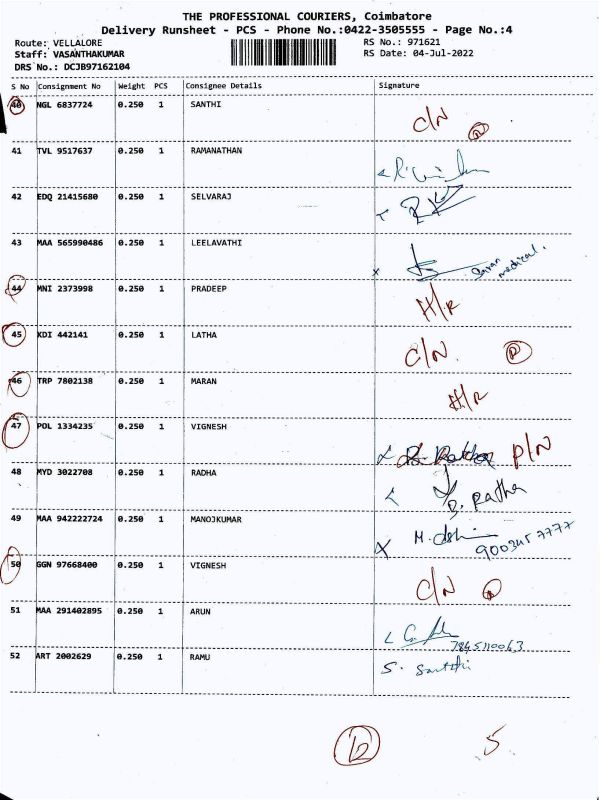 THE PROFESSIONAL COURIERS, Coimbatore
Delivery Runsheet - PCS - Phone No.:0422-3505555 - Page No.:4
Route: VELLALORE RS No.: 971621
Staff: VASANTHAKUMAR RS Date: 04-Jul-2022
DRS No.: DCJB97162104
S No Consignment No Weight PCS Consignee Details Signature
40 NGL 6837724 0.250 1 SANTHI C/N
41 TVL 9517637 0.250 1 RAMANATHAN
42 EDQ 21415680 0.250 1 SELVARAJ
43 MAA 565990486 0.250 1 LEELAVATHI Saran medical.
44 MNI 2373998 0.250 1 PRADEEP H/R
45 KDI 442141 0.250 1 LATHA C/N.
46 TRP 7802138 0.250 1 MARAN H/R
47 POL 1334235 0.250 1 VIGNESH P/N
48 MYD 3022708 0.250 1 RADHA B. Radha
49 MAA 942222724 0.250 1 MANOJKUMAR
50 GGN 97668400 0.250 1 VIGNESH C/N
51 MAA 291402895 0.250 1 ARUN
52 ART 2002629 0.250 1 RAMU S. Santhi
5